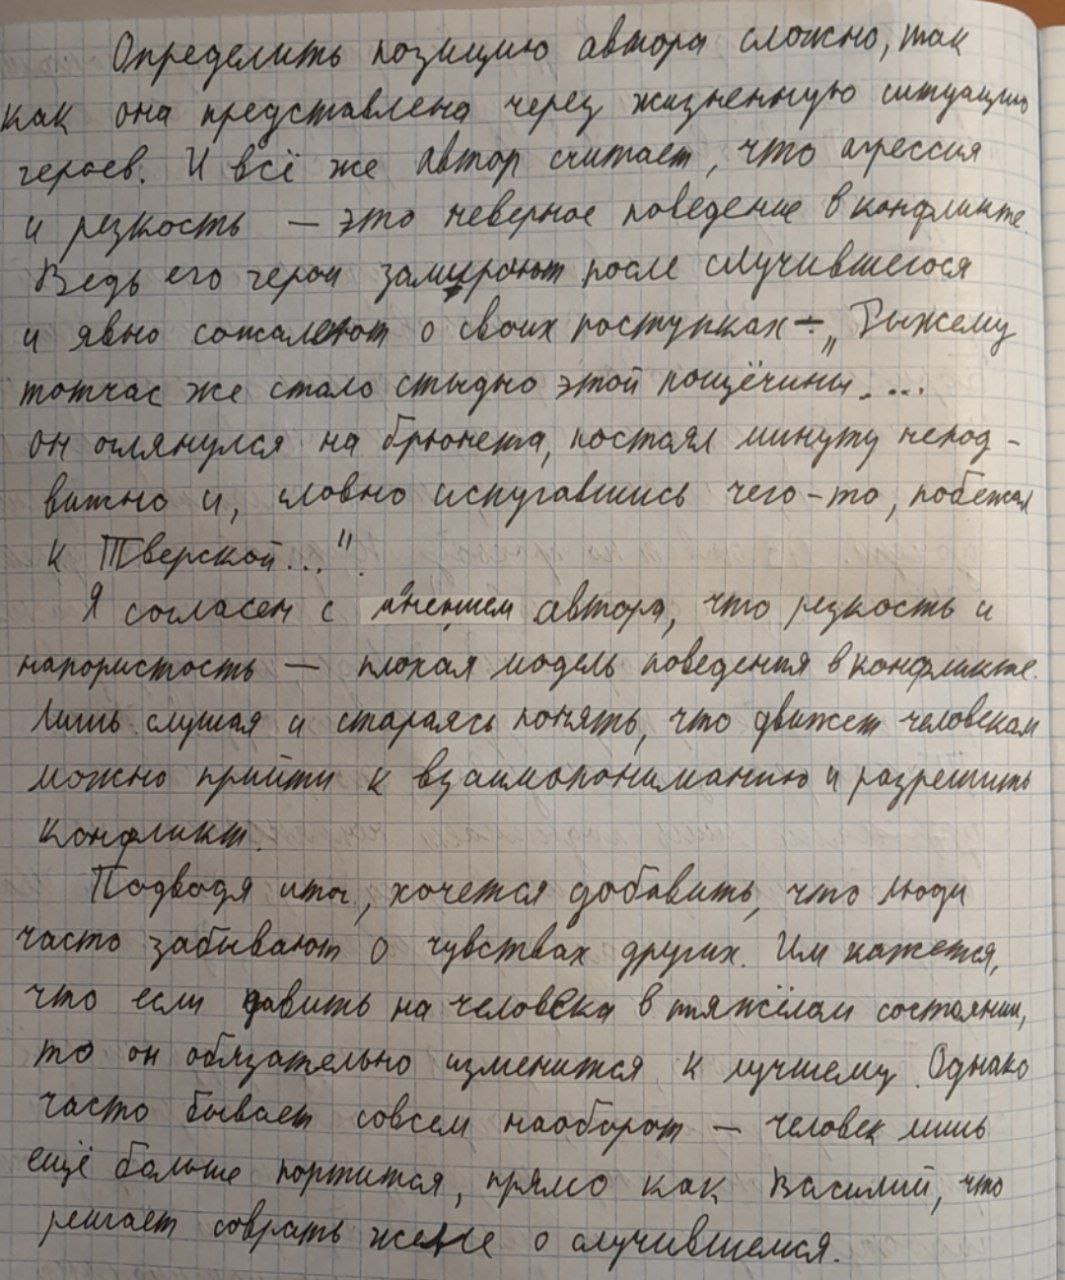 Определить позицию автора сложно, так
как она представлена через жизненную ситуацию
героев. И всё же автор считает, что агрессия
и резкость – это неверное поведение в конфликте.
Ведь его герои замирают после случившегося
и явно сожалеют о своих поступках – „Рыжему
тотчас же стало стыдно этой пощёчины. ...
он оглянулся на брюнета, постоял минуту непод-
вижно и, словно испугавшись чего-то, побежал
к Тверской..."
Я согласен с мнением автора, что резкость и
напористость – плохая модель поведения в конфликте.
Лишь слушая и стараясь понять, что движет человеком
можно прийти к взаимопониманию и разрешить
конфликт.
Подводя итог, хочется добавить, что люди
часто забывают о чувствах других. Им кажется,
что если давить на человека в тяжёлом состоянии,
то он обязательно изменится к лучшему. Однако
часто бывает совсем наоборот – человек лишь
ещё больше портится, прямо как Василий, что
решает соврать жене о случившемся.